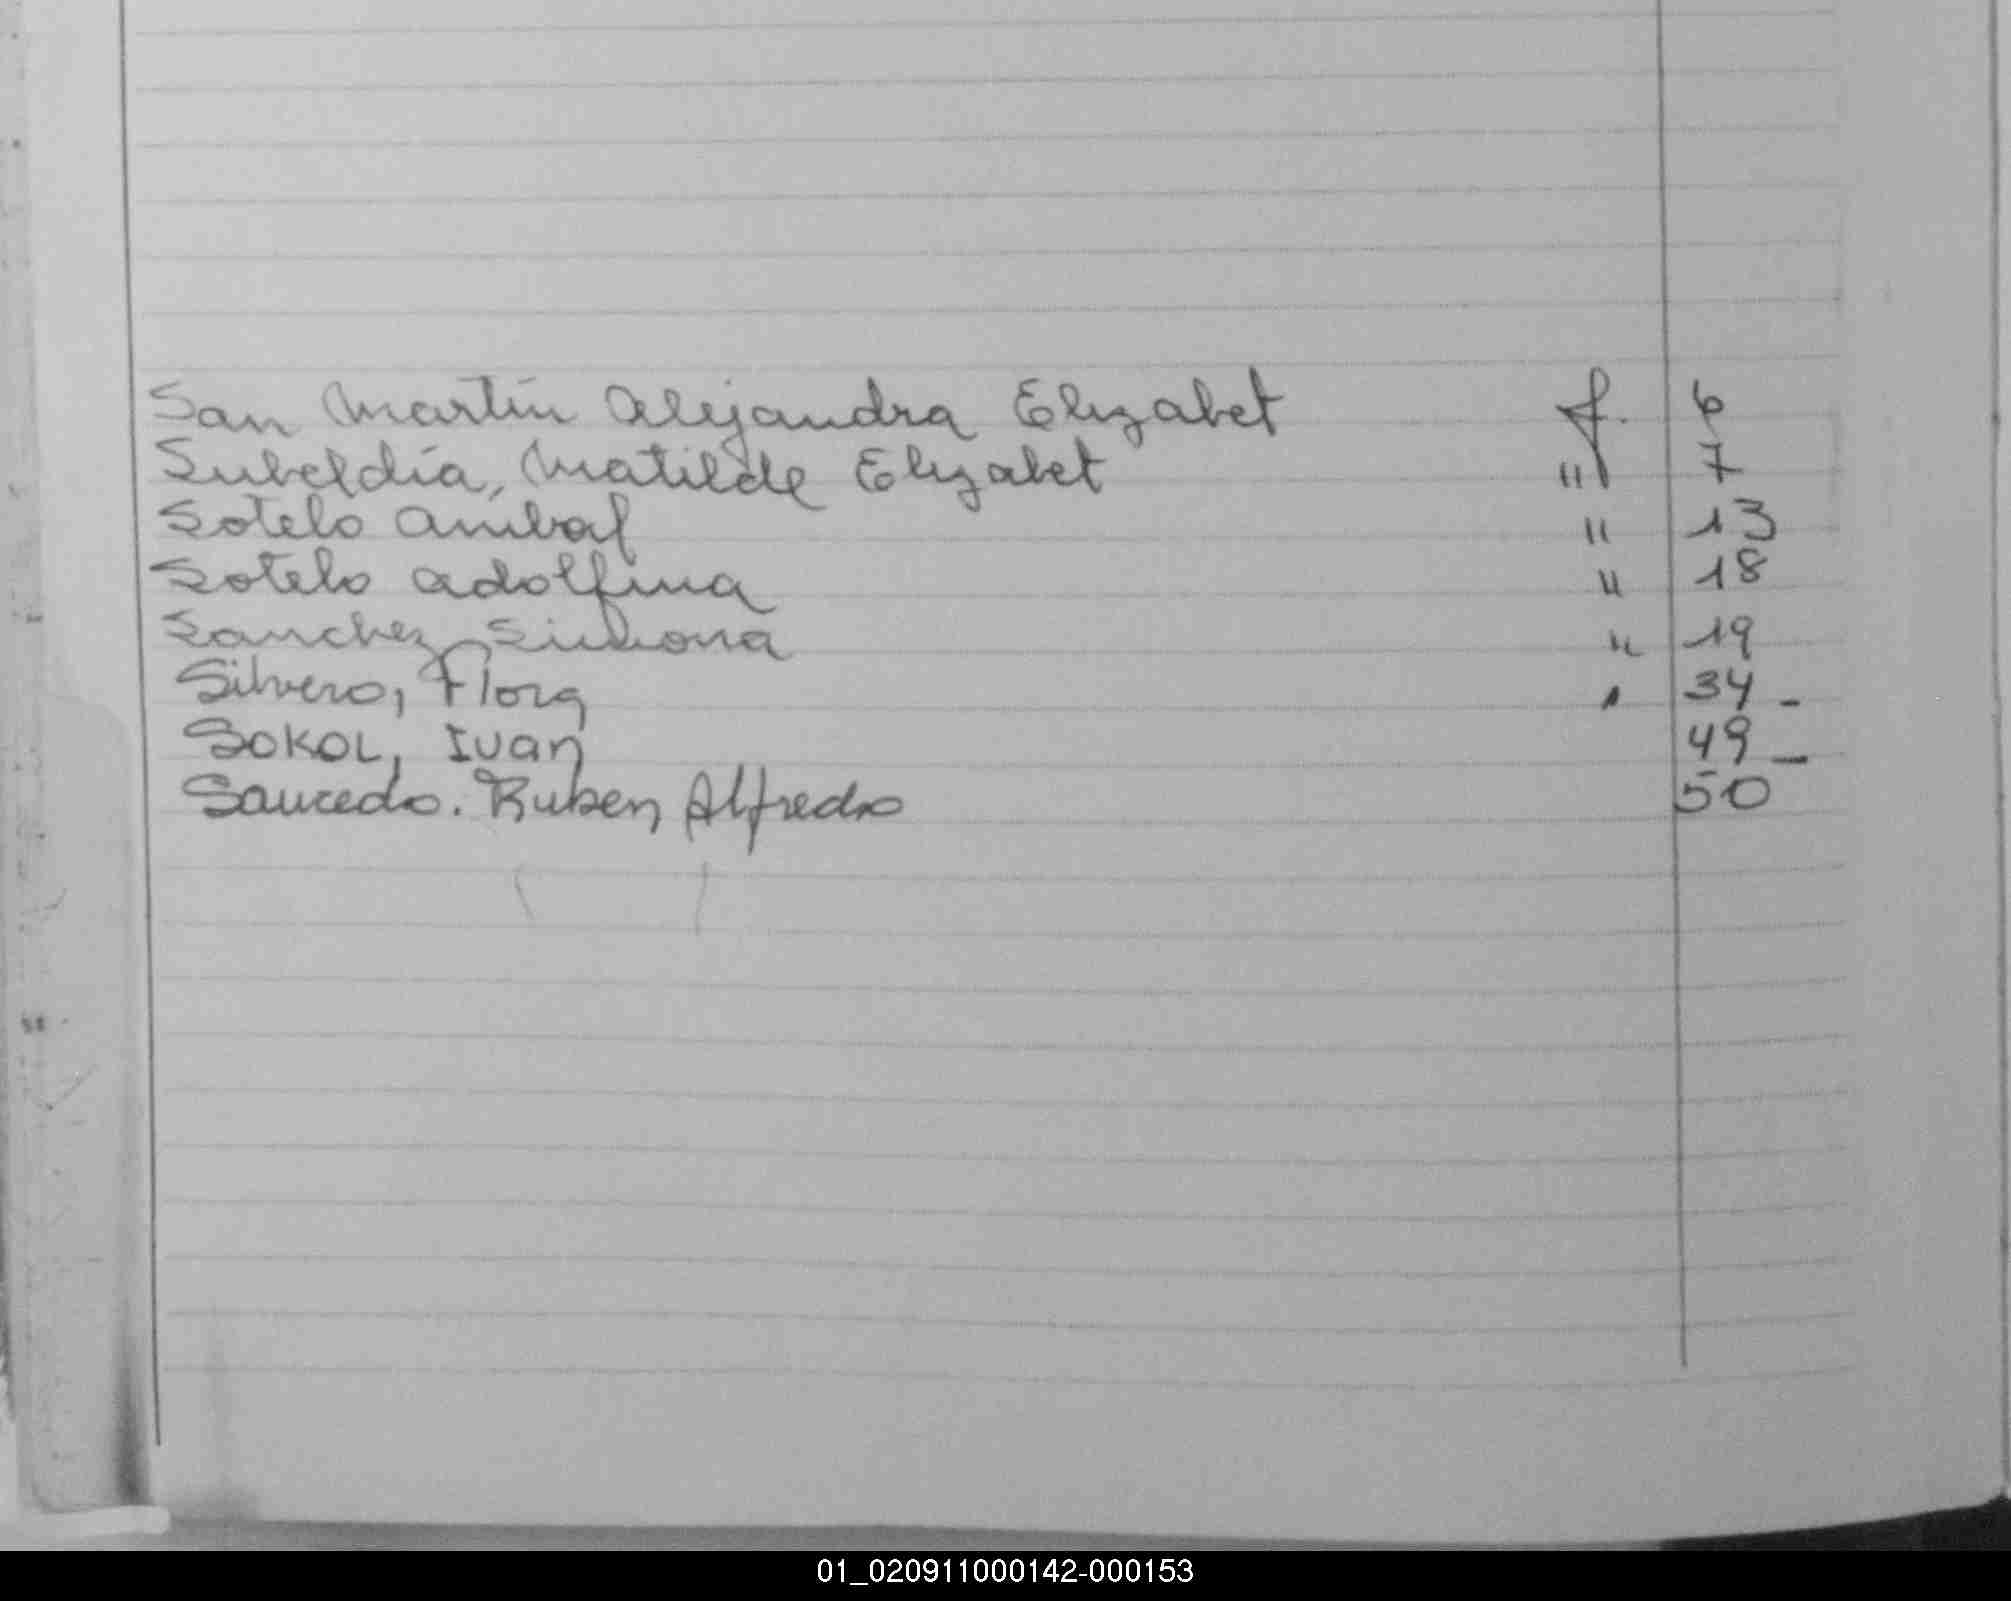 San Martín Alejandra Elizabet f. 6
Subeldía, Matilde Elizabet " 7
Sotelo Anibal " 13
Sotelo Adolfina " 18
Sanchez Simona " 19
Silvero, Flora " 34 -
SOKOL, Ivan 49 -
Saucedo. Ruben Alfredo 50
01_020911000142-000153